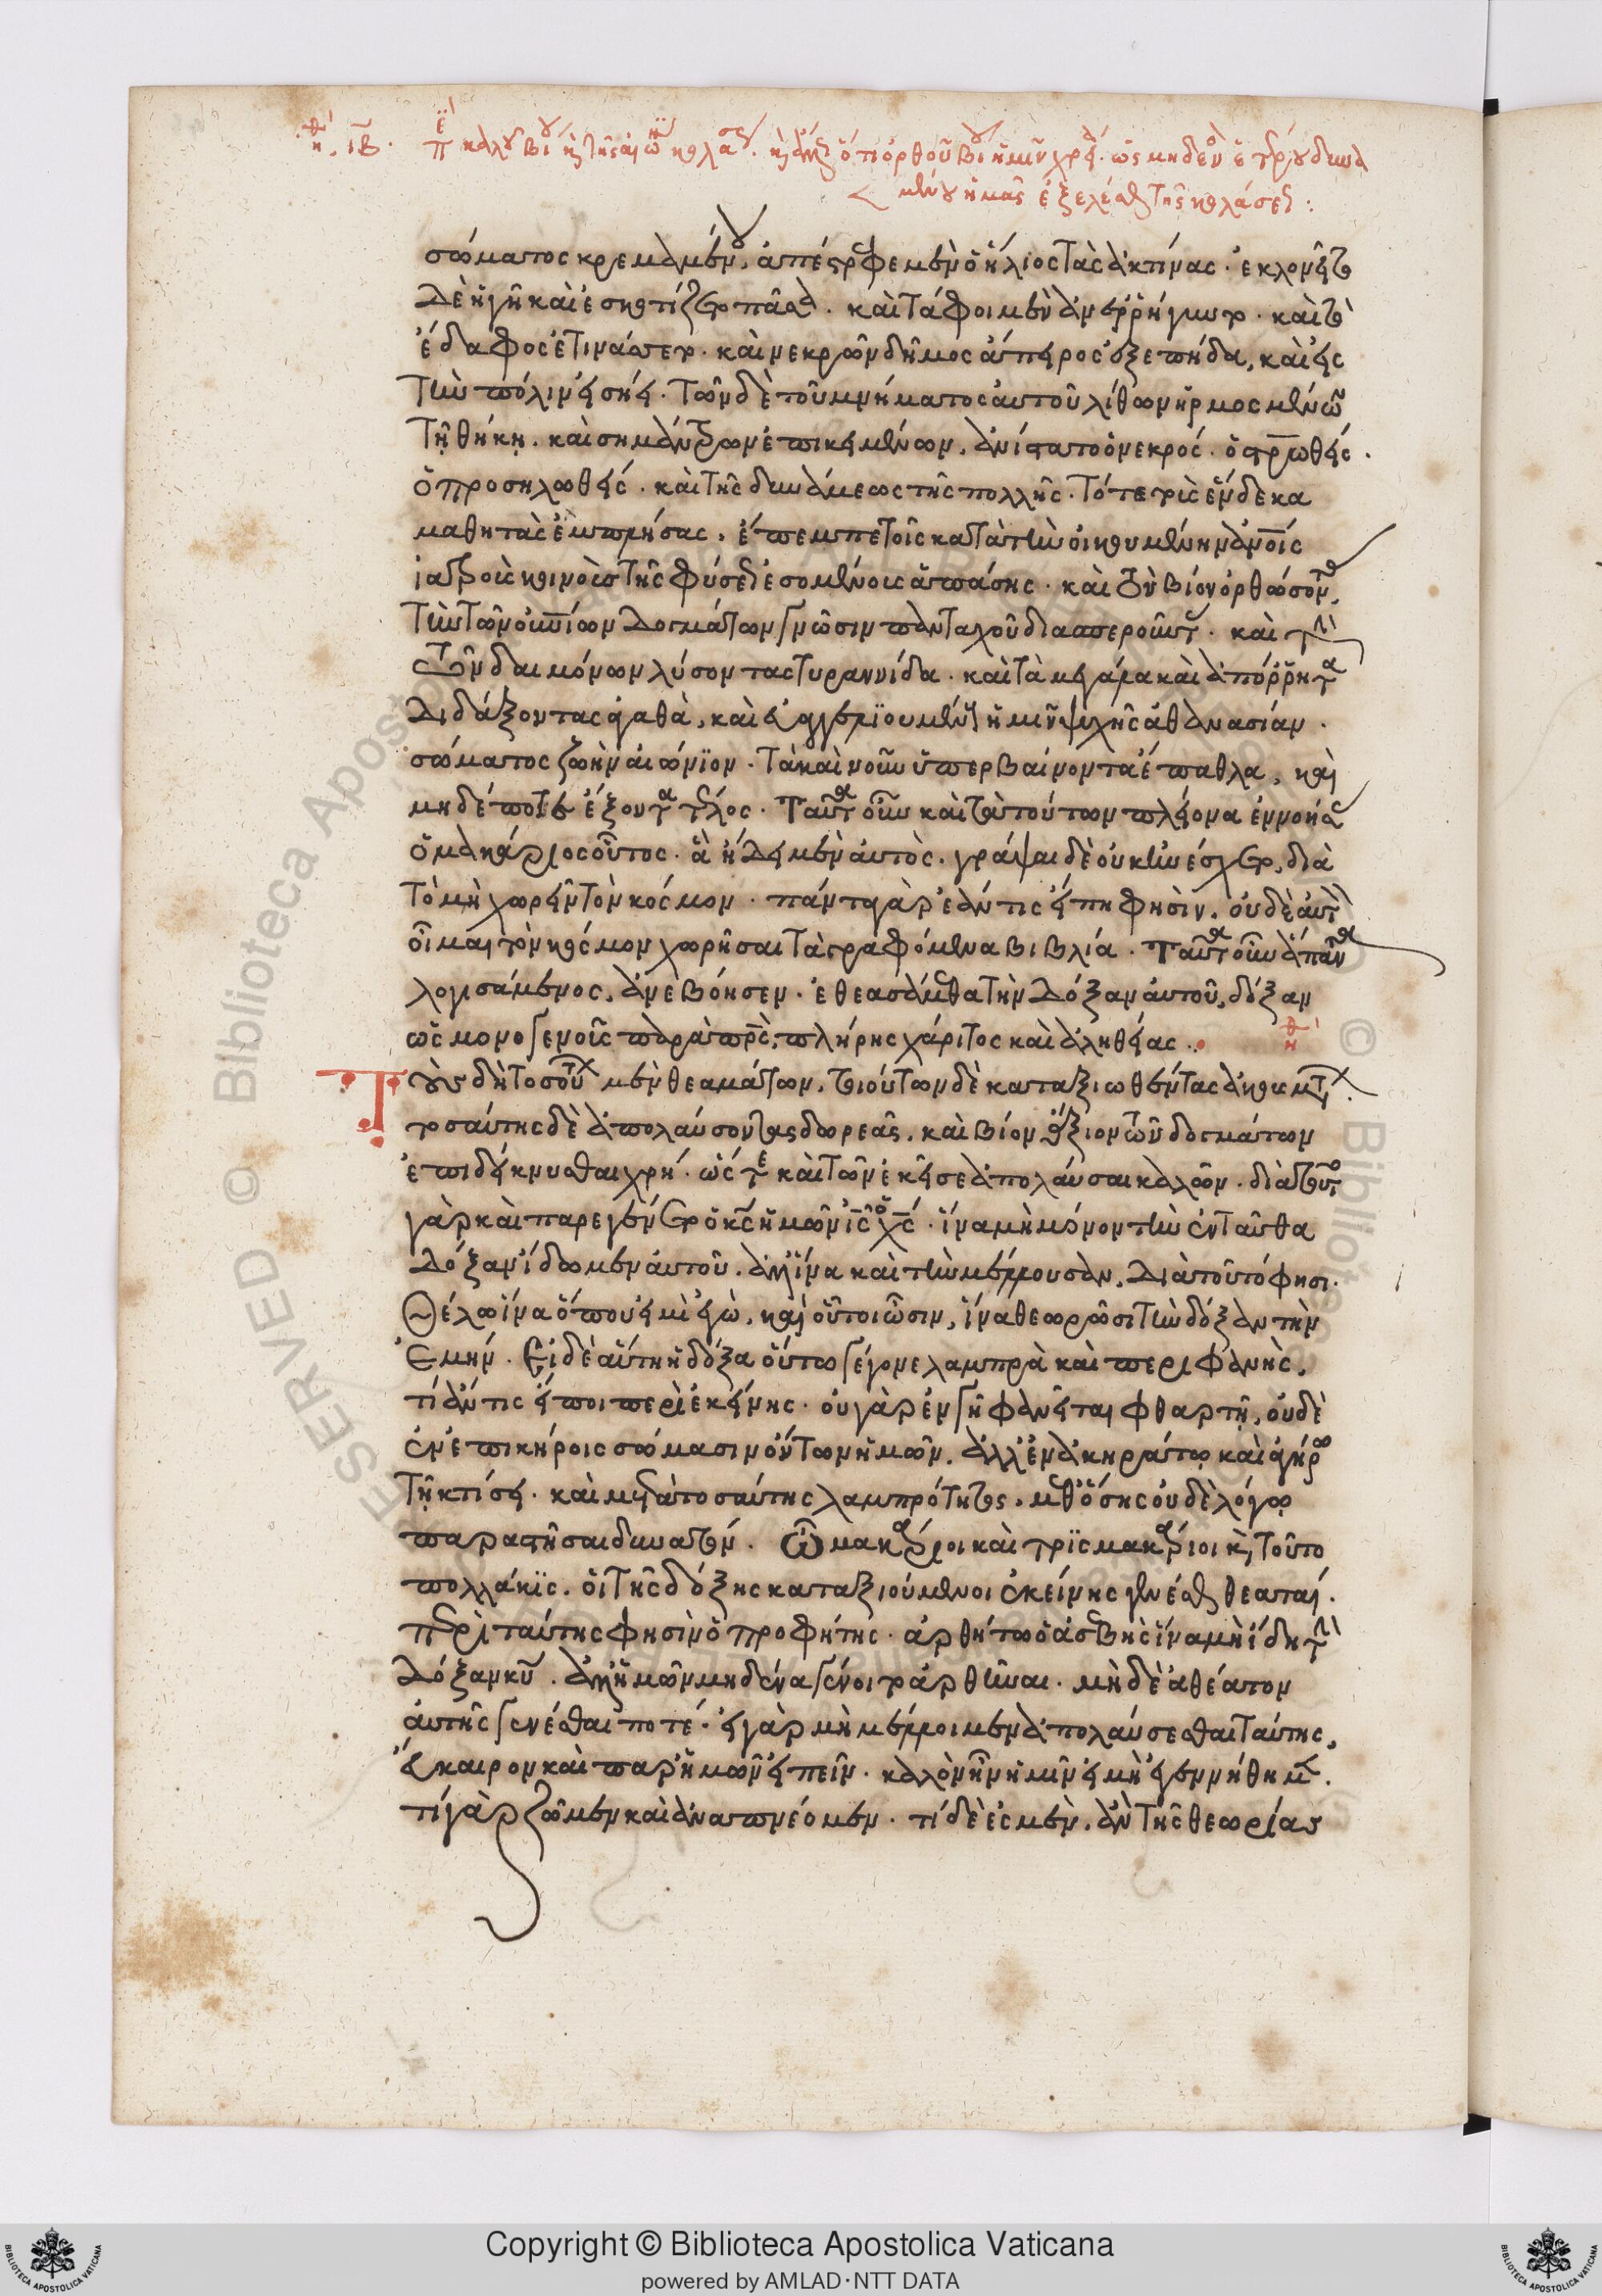 σώματος κρεμαμένου, ἀπέστρεφε μὲν ὁ ἥλιος τὰς ἀκτίνας. ἐκλονεῖτο
δὲ ἡ γῆ καὶ ἐσκοτίζετο πᾶσα. καὶ τάφοι μὲν ἀνερρήγνυντο. καὶ τὸ
ἔδαφος ἐτινάσσετο. καὶ νεκρῶν δῆμος ἄπειρος ἐξεπήδα, καὶ εἰς
τὴν πόλιν εἰσῄει. τῶν δὲ τοῦ μνήματος αὐτοῦ λίθων ἡρμοσμένων
τῇ θήκῃ. καὶ σημάντρων ἐπικειμένων, ἀνίστατο ὁ νεκρός. ὁ σταυρωθείς.
ὁ προσηλωθείς. καὶ τῆς δυνάμεως τῆς πολλῆς τοὺς ἕνδεκα
μαθητὰς ἐμπλήσας, ἔπεμπε τοῖς κατὰ τὴν οἰκουμένην ἀνθρώποις
ἰατροὺς κοινοὺς τῆς φύσεως ἐσομένους ἁπάσης. καὶ τὸν βίον ὀρθώσοντας,
τὴν τῶν οὐρανίων δογμάτων γνῶσιν πανταχοῦ διασπεροῦντας. καὶ τὴν
τῶν δαιμόνων λύσοντας τυραννίδα. καὶ τὰ μεγάλα καὶ ἀπόρρητα
διδάξοντας ἀγαθὰ, καὶ εὐαγγελιουμένους ἡμῖν ψυχῆς ἀθανασίαν.
σώματος ζωὴν αἰώνιον. τὰ καὶ νοῦν ὑπερβαίνοντα ἔπαθλα, καὶ
μηδέποτε ἕξοντα τέλος. ταῦτα οὖν καὶ τὰ τούτων πλείονα ἐννοήσας
ὁ μακάριος οὗτος. ἃ ᾔδει μὲν αὐτὸς. γράψαι δὲ οὐκ ἠνέσχετο, διὰ
τὸ μὴ χωρεῖν τὸν κόσμον. πάντα γὰρ ἐάν τις εἴπῃ φησὶν, οὐδὲ αὐτὸν
οἶμαι τὸν κόσμον χωρῆσαι τὰ γραφόμενα βιβλία. ταῦτα οὖν ἅπαντα
λογισάμενος, ἀνεβόησεν. ἐθεασάμεθα τὴν δόξαν αὐτοῦ, δόξαν
ὡς μονογενοῦς παρὰ πατρὸς, πλήρης χάριτος καὶ ἀληθείας.
Τοὺς δὴ τοσούτων μὲν θεαμάτων, τοιούτων δὲ καταξιωθέντας ἀκουσμάτων.
τοσαύτης δὲ ἀπολαύσοντας δωρεᾶς. καὶ βίον ἄξιον τῶν δογμάτων
ἐπιδείκνυσθαι χρή. ὥστε καὶ τῶν ἐκεῖσε ἀπολαῦσαι καλῶν. διὰ τοῦτο
γὰρ καὶ παρεγένετο ὁ κς ἡμῶν ις ὁ χς. ἵνα μὴ μόνον τὴν ἐνταῦθα
δόξαν ἴδωμεν αὐτοῦ. ἀλλ' ἵνα καὶ τὴν μέλλουσαν. διὰ τοῦτό φησι.
Θέλω ἵνα ὅπου εἰμὶ ἐγὼ, καὶ οὗτοι ὦσιν, ἵνα θεωρῶσι τὴν δόξαν τὴν
ἐμήν. Εἰ δὲ αὕτη ἡ δόξα οὕτω γέγονε λαμπρὰ καὶ περιφανὴς,
τί ἄν τις εἴποι περὶ ἐκείνης. οὐ γὰρ ἐν γῇ φανεῖται φθαρτῇ, οὐδὲ
ἐν ἐπικήροις σώμασιν ὄντων ἡμῶν, ἀλλ' ἐν ἀκηράτῳ καὶ ἀγήρῳ
τῇ κτίσει. καὶ μετὰ τοσαύτης λαμπρότητος, μεθ' ὅσης οὐδὲ λόγῳ
παραστῆσαι δυνατόν. ὦ μακάριοι καὶ τρὶς μακάριοι καὶ τοῦτο
πολλάκις, οἱ τῆς δόξης καταξιούμενοι ἐκείνης γενέσθαι θεαταί.
περὶ ταύτης φησὶν ὁ προφήτης. ἀρθήτω ὁ ἀσεβὴς ἵνα μὴ ἴδῃ τὴν
δόξαν κυ. ἀλλ' ἡμῶν μηδένα γένοιτο ἀρθῆναι. μὴ δὲ ἀθέατον
αὐτῆς γενέσθαι ποτέ. εἰ γὰρ μὴ μέλλοιμεν ἀπολαύσεσθαι ταύτης,
εὔκαιρον καὶ παρ' ἡμῶν εἰπεῖν. καλὸν ἦν ἡμῖν εἰ μὴ ἐγεννήθημεν.
τί γὰρ ζῶμεν καὶ ἀναπνέομεν. τί δὲ ἐσμὲν, ἂν τῆς θεωρίας